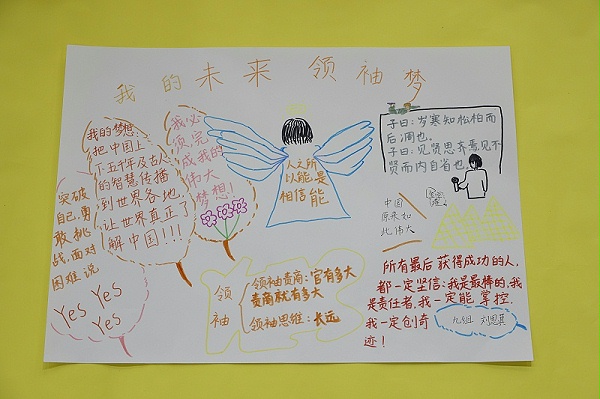 我的未来 领袖梦
我的梦想:
把中国上
下五千年及古人
的智慧传播
到世界各地,
让世界真正了
解中国!!!
我必
须完
成我的
伟大
梦想!
突破
自己,勇
敢挑
战,面对
困难说
Yes Yes
Yes
人之所
以能,是
相信能
子曰:岁寒知松柏而
后凋也。
子曰:见贤思齐焉,见不
贤而内自省也。
中国
原来如
此伟大
领袖
领袖责商:官有多大
责商就有多大
领袖思维:长远
所有最后获得成功的人,
都一定坚信:我是最棒的,我
是责任者,我一定能掌控.
我一定创奇
迹!
九组 刘恩真